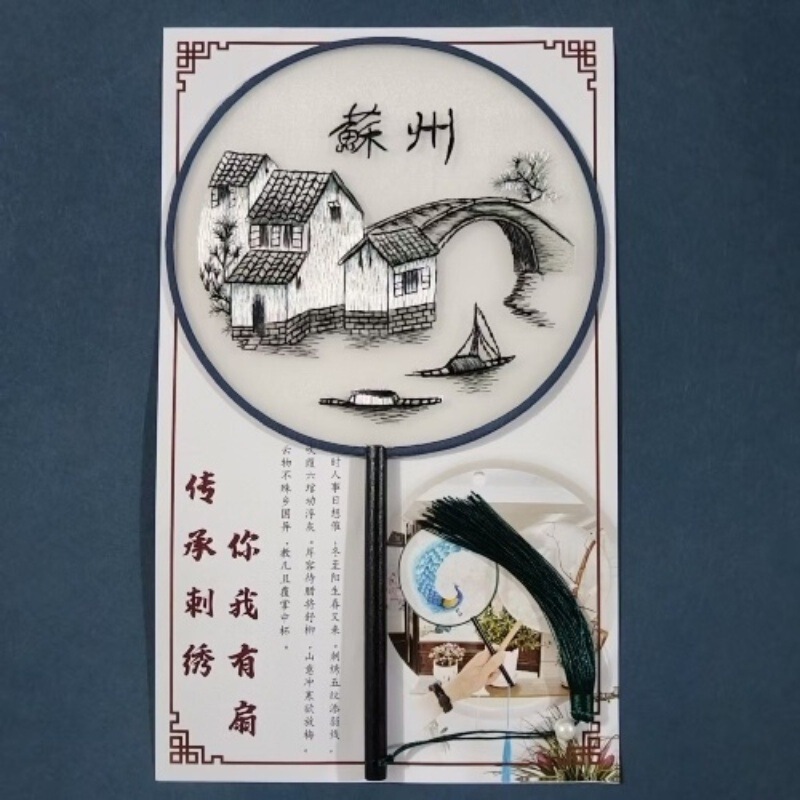 蘇州
传承刺绣
你我有扇
时人事日想催，冬至阳生春又来。刺绣五纹添弱线，
吹葭六琯动浮灰。岸容待腊将舒柳，山意冲寒欲放梅。
云物不殊乡国异，教儿且覆掌中杯。